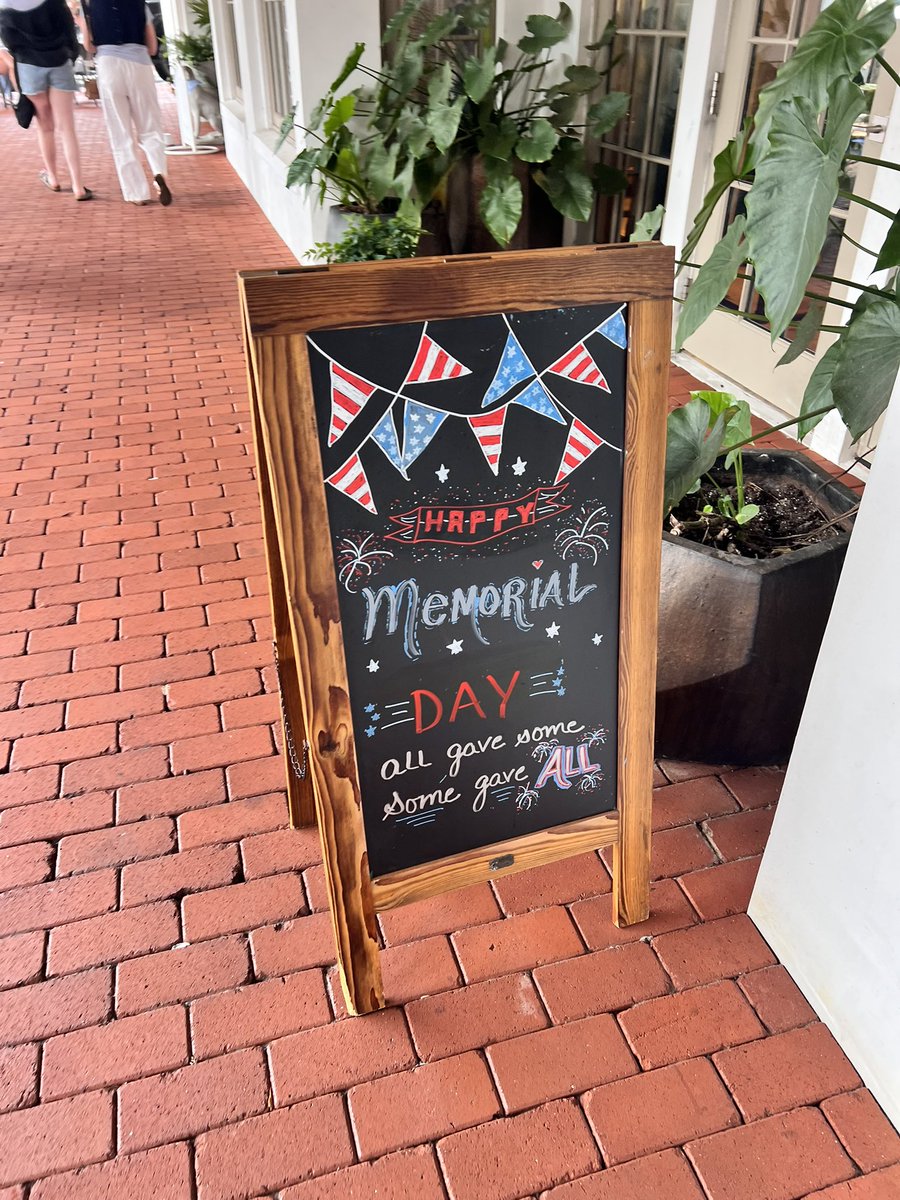 HAPPY
MEMORIAL
DAY
all gave some
some gave ALL